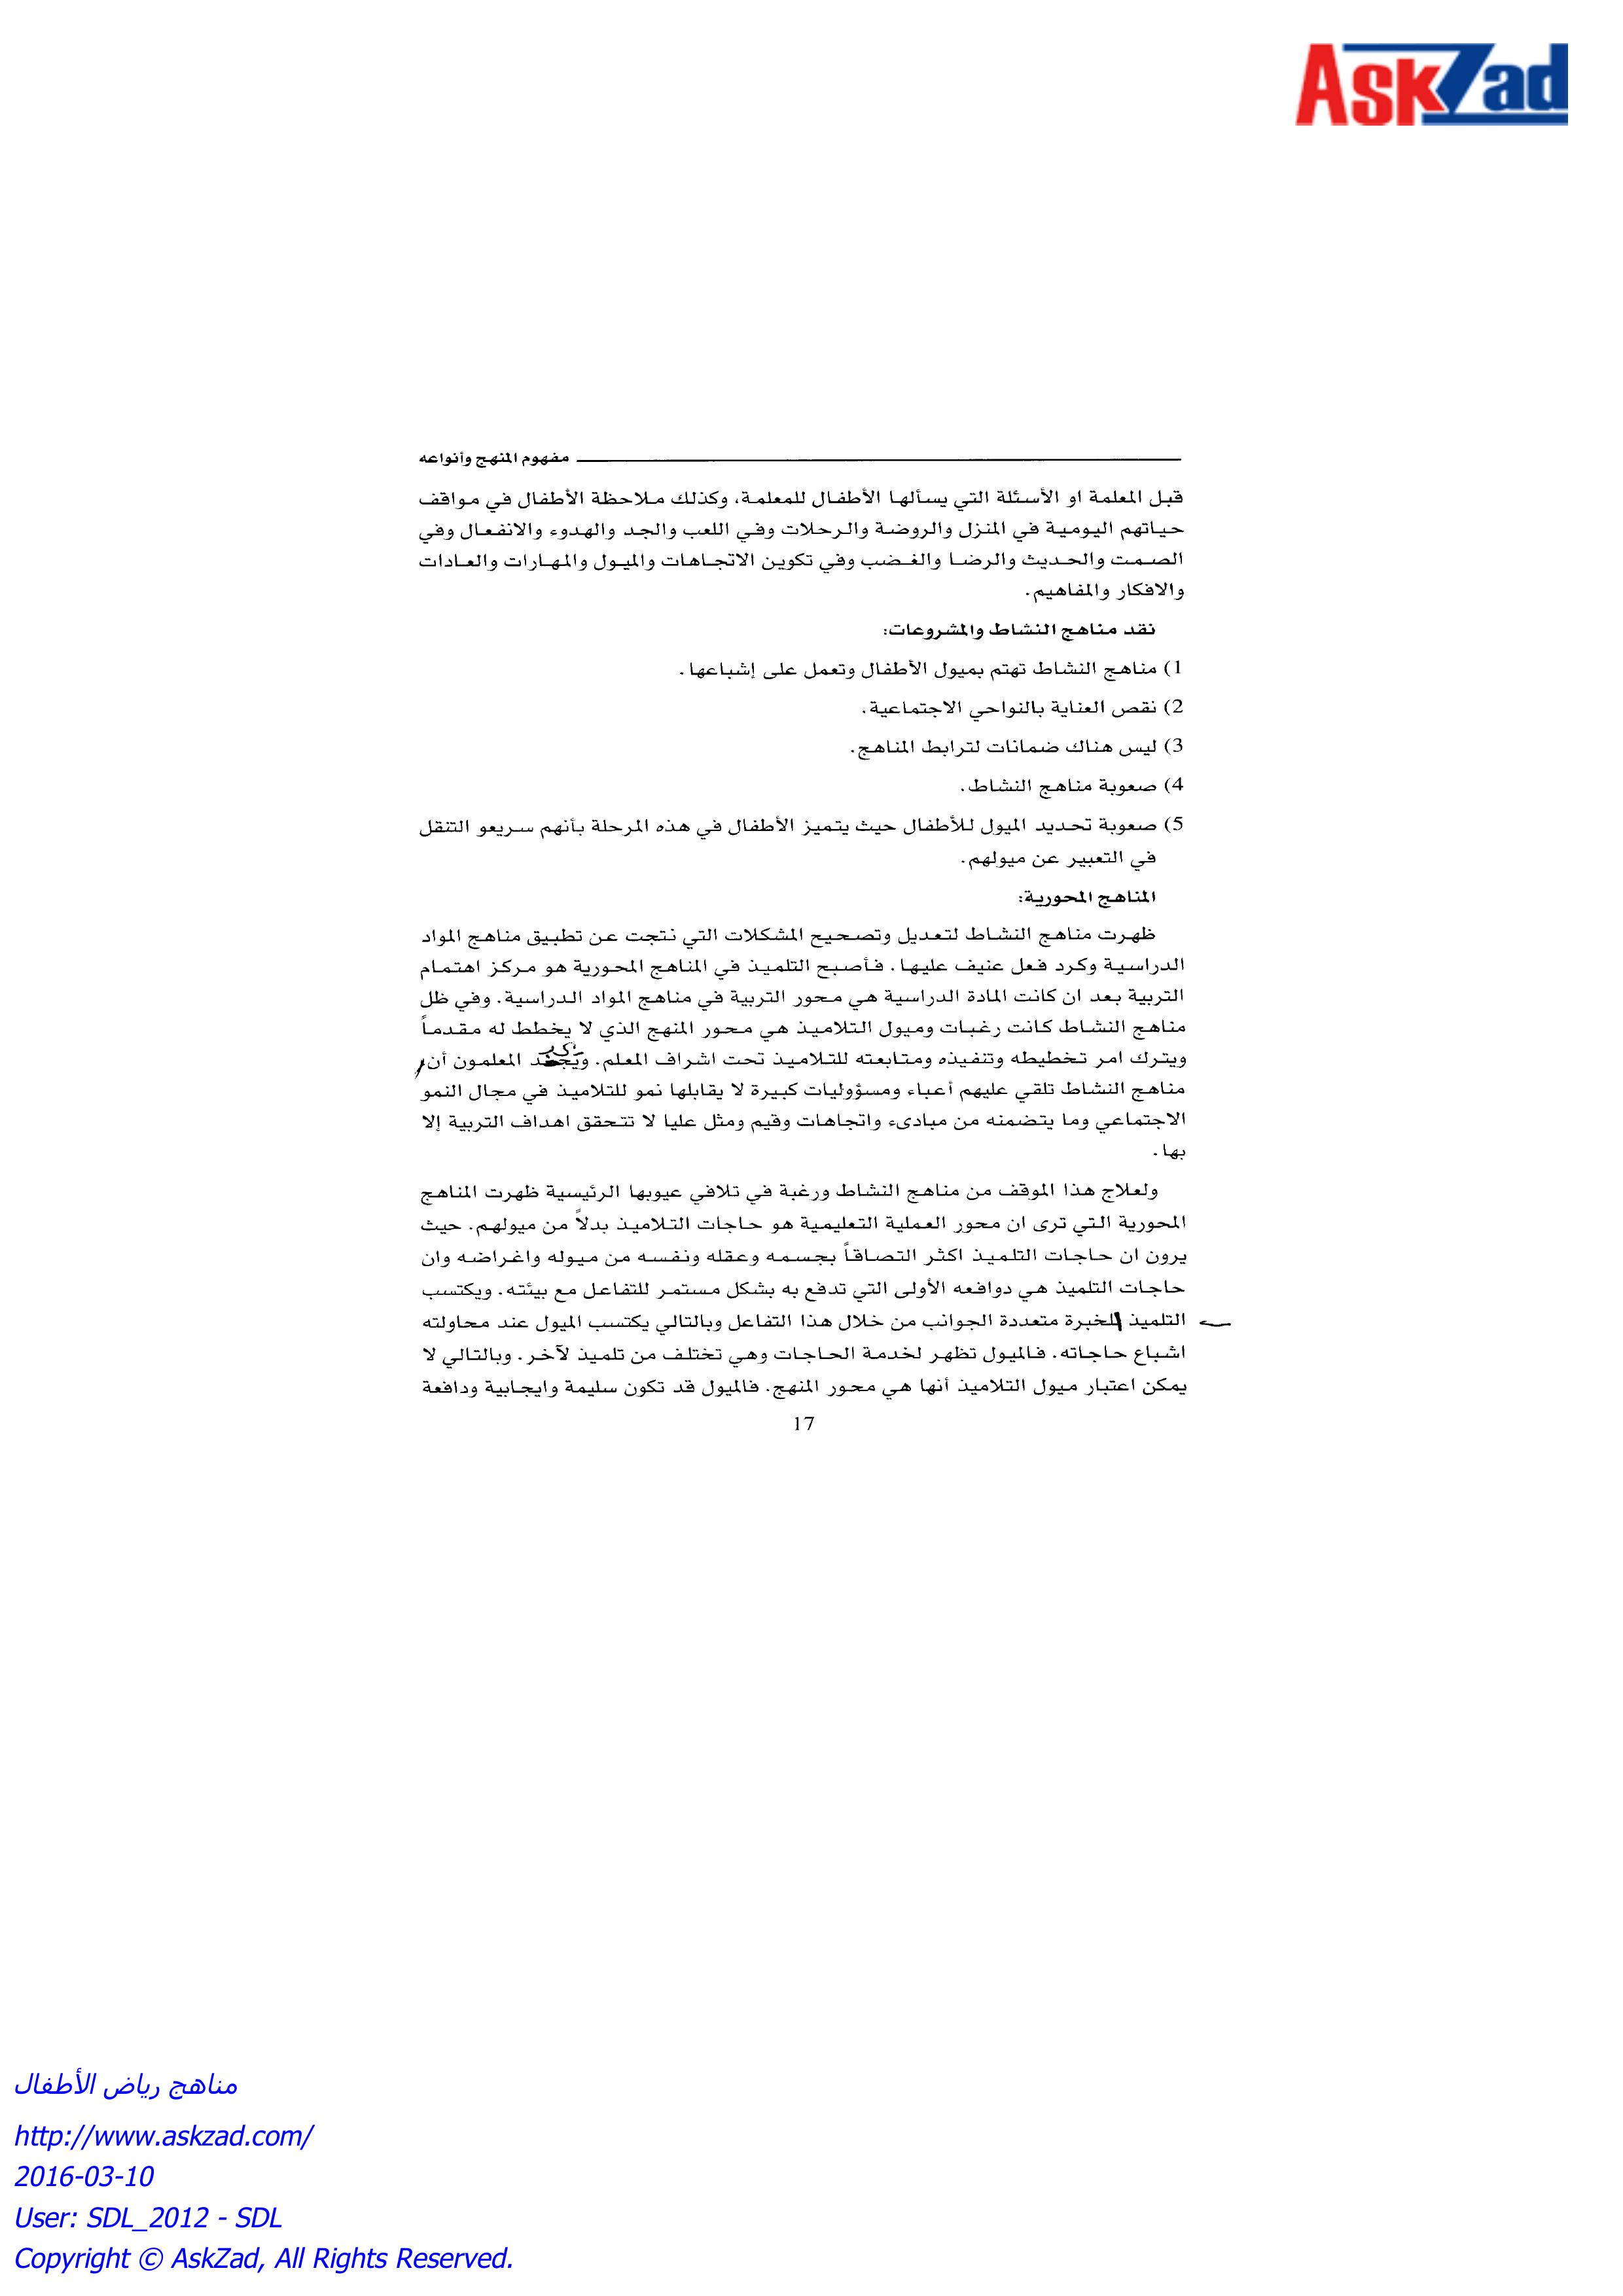 AskZad
مفهوم المنهج وأنواعه
قبل المعلمة او الأسئلة التي يسألها الأطفال للمعلمة، وكذلك ملاحظة الأطفال في مواقف
حياتهم اليومية في المنزل والروضة والرحلات وفي اللعب والجد والهدوء والانفعال وفي
الصمت والحديث والرضا والغضب وفي تكوين الاتجاهات والميول والمهارات والعادات
والافكار والمفاهيم.
نقد مناهج النشاط والمشروعات:
1) مناهج النشاط تهتم بميول الأطفال وتعمل على إشباعها.
2) نقص العناية بالنواحي الاجتماعية.
3) ليس هناك ضمانات لترابط المناهج.
4) صعوبة مناهج النشاط.
5) صعوبة تحديد الميول للأطفال حيث يتميز الأطفال في هذه المرحلة بأنهم سريعو التنقل
في التعبير عن ميولهم.
المناهج المحورية:
ظهرت مناهج النشاط لتعديل وتصحيح المشكلات التي نتجت عن تطبيق مناهج المواد
الدراسية وكرد فعل عنيف عليها. فأصبح التلميذ في المناهج المحورية هو مركز اهتمام
التربية بعد ان كانت المادة الدراسية هي محور التربية في مناهج المواد الدراسية. وفي ظل
مناهج النشاط كانت رغبات وميول التلاميذ هي محور المنهج الذي لا يخطط له مقدماً
ويترك امر تخطيطه وتنفيذه ومتابعته للتلاميذ تحت اشراف المعلم. المعلمون أن
مناهج النشاط تلقي عليهم أعباء ومسؤوليات كبيرة لا يقابلها نمو للتلاميذ في مجال النمو
الاجتماعي وما يتضمنه من مبادىء واتجاهات وقيم ومثل عليا لا تتحقق اهداف التربية إلا
بها.
ولعلاج هذا الموقف من مناهج النشاط ورغبة في تلافي عيوبها الرئيسية ظهرت المناهج
المحورية التي ترى ان محور العملية التعليمية هو حاجات التلاميذ بدلاً من ميولهم. حيث
يرون ان حاجات التلميذ اكثر التصاقاً بجسمه وعقله ونفسه من ميوله واغراضه وان
حاجات التلميذ هي دوافعه الأولى التي تدفع به بشكل مستمر للتفاعل مع بيئته. ويكتسب
التلميذ متعددة الجوانب من خلال هذا التفاعل وبالتالي يكتسب الميول عند محاولته
اشباع حاجاته. فالميول تظهر لخدمة الحاجات وهي تختلف من تلميذ لآخر. وبالتالي لا
يمكن اعتبار ميول التلاميذ أنها هي محور المنهج. فالميول قد تكون سليمة وايجابية ودافعة
17
مناهج رياض الأطفال
http://www.askzad.com/
2016-03-10
User: SDL_2012 - SDL
Copyright © AskZad, All Rights Reserved.